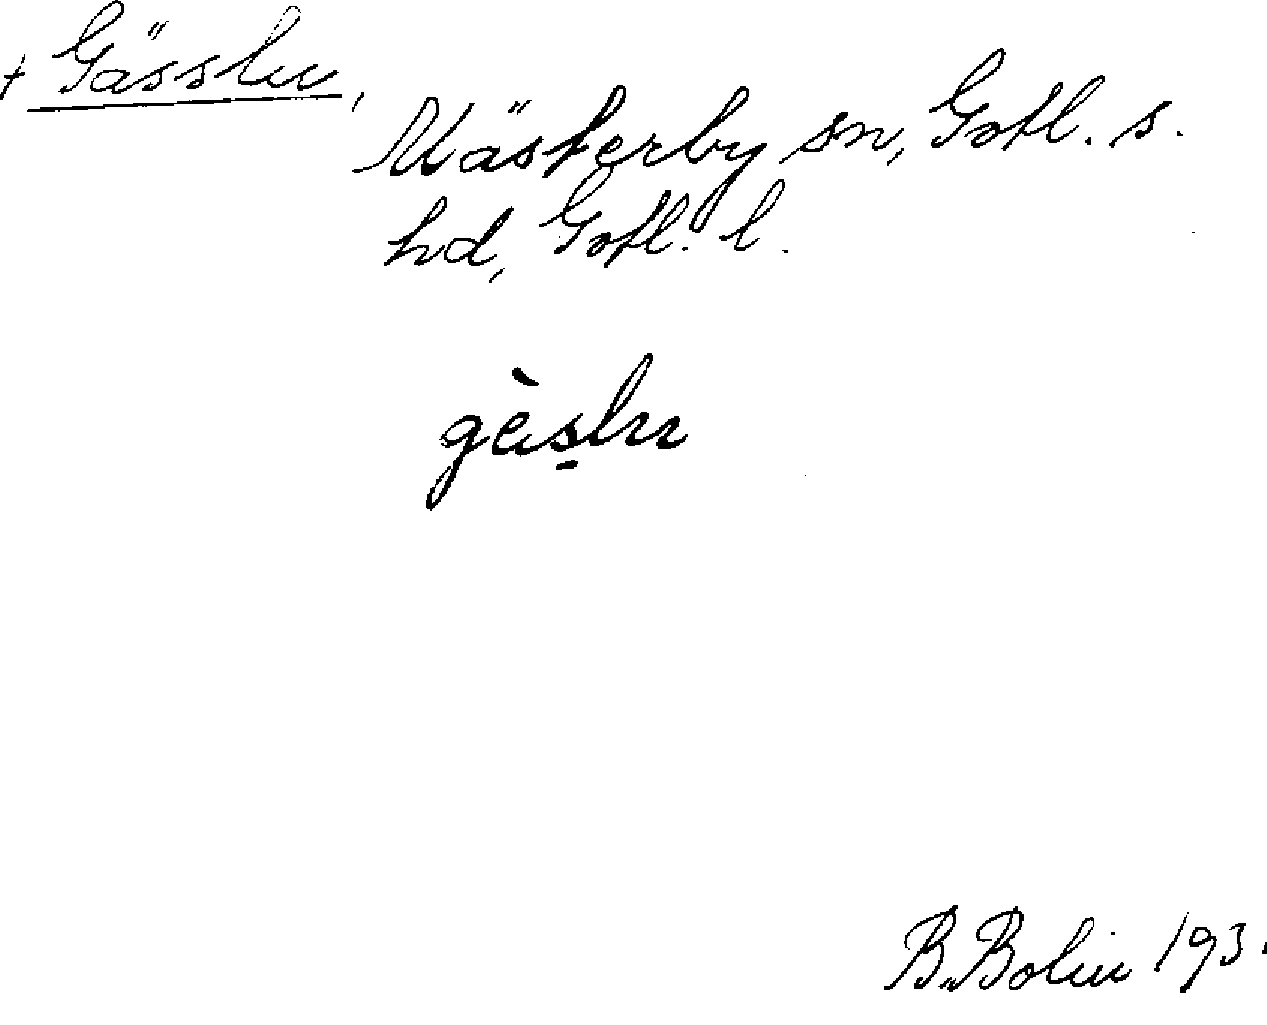 + Gässlu,
Mästerby sn, Gotl. s.
hd, Gotl. l.
gèslu
B. Bolin 193.